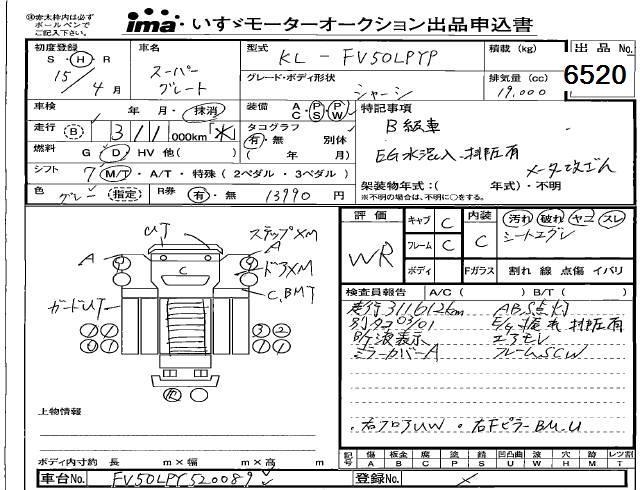 ㊟赤太枠内は必ず
ボールペンで
ご記入下さい。
ima いすゞモーターオークション出品申込書
初度登録
S・H・R
15年 4月
車名
スーパー
グレート
型式
KL - FV50LPYP
積載 (kg)
グレード・ボディ形状
シャーシ
排気量 (cc)
19,000
出品No.
6520
車検
年 月・抹消
装備 A C P S P W
特記事項
B級車
走行 (B) 311 000km
タコグラフ
有・無 別体
( 年 月)
燃料 G D HV 他( )
EG水泥入 排臣有
メータ改ざん
シフト 7 M/T・A/T・特殊 (2ペダル・3ペダル)
架装物年式:( 年式)・不明
※不明の場合は、不明に○をする。
色 グレー (指定) R券 有・無 13990 円
評価
WR
キャブ C
フレーム C
ボディ
内装 C
汚れ 破れ ヤニ スレ
シートエグレ
Fガラス 割れ 線 点傷 イバリ
UT
ステップXM
A
A
ドアXM
C
C,BMT
ガードUT
検査員報告 A/C ( ) B/T ( )
走行311612km ABS点灯
別タコ03/01
エアモレ
ミラーカバーA フレームSCW
右フロアUW ・右FピラーBM,U
上物情報
ボディ内寸約 長 m×幅 m×高 m
記号 傷A 板金B 腐C 塗P 錆S 凹凸曲U 波W 穴H 跡M レンズ割T
車台No. FV50LPY520089
登録No.